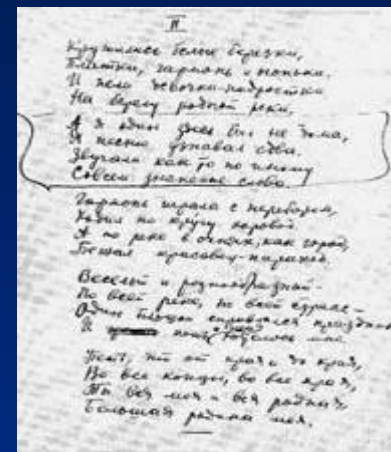 II
Кружились белые березки,
Платки, гармонь и огоньки.
И пели девочки-подростки
На берегу родной реки.
А я один здесь был не дома,
Я песню узнавал едва.
Звучали как то по иному
Совсем знакомые слова.
Гармонь играла с перебором,
Ходил по кругу хоровод
А по реке в огнях, как город,
Бежал красавец-пароход.
Веселый и разнообразный -
По всей реке, по всей стране -
Один большой справлялся праздник
И петь хотелось мне.
Петь, что от края и до края,
Во все концы, во все края,
Ты вся моя и вся родная,
Большая родина моя.